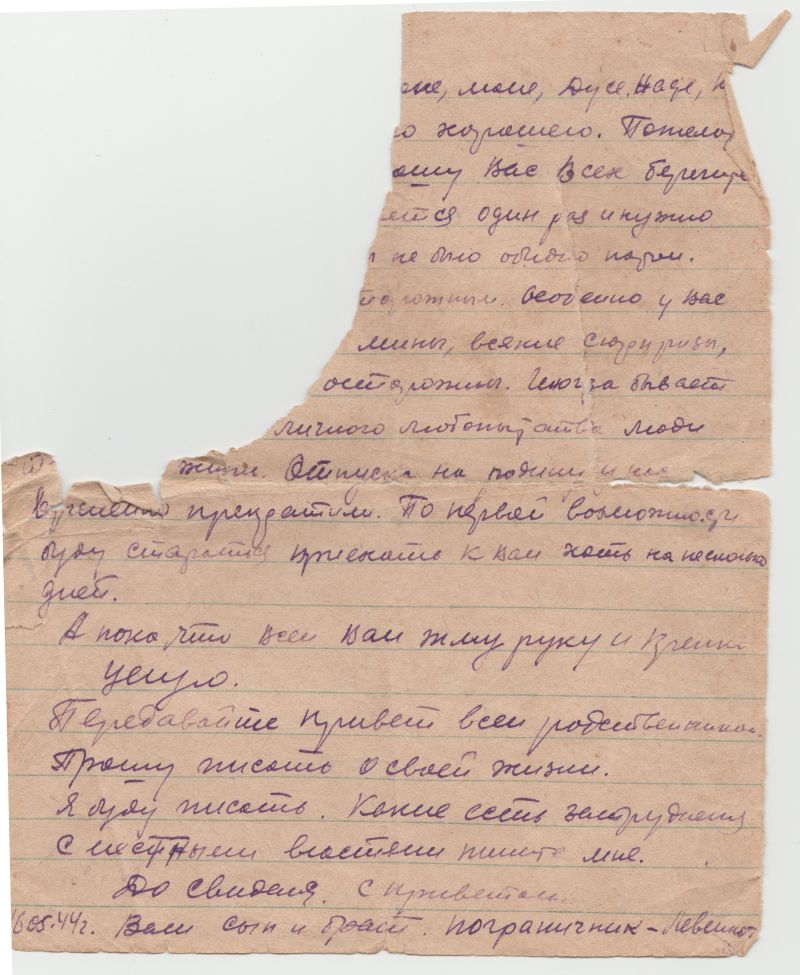 оле, моле, Дусе, Наде, Н
о хорошего. Пожела
ошу Вас Всех берегите
ется один раз и нужно
ы не было обидно потом.
торожным. Особенно у вас
мины, всякие сюрпризы,
осторожны. Иногда бывает
личного любопытства люди
жизни. Отпуска на родину у нас
временно прекратили. По первой возможности
буду старатся приехать к Вам хоть на несколько
дней.
А пока что всем вам жму руку и крепко
целую.
Передавайте привет всем родственникам.
Прошу писать о своей жизни.
Я буду писать. Какие есть затруднения
с местными властями пишите мне.
До свиданя. с приветом
16 05.44г. Ваш сын и брат. пограничник –